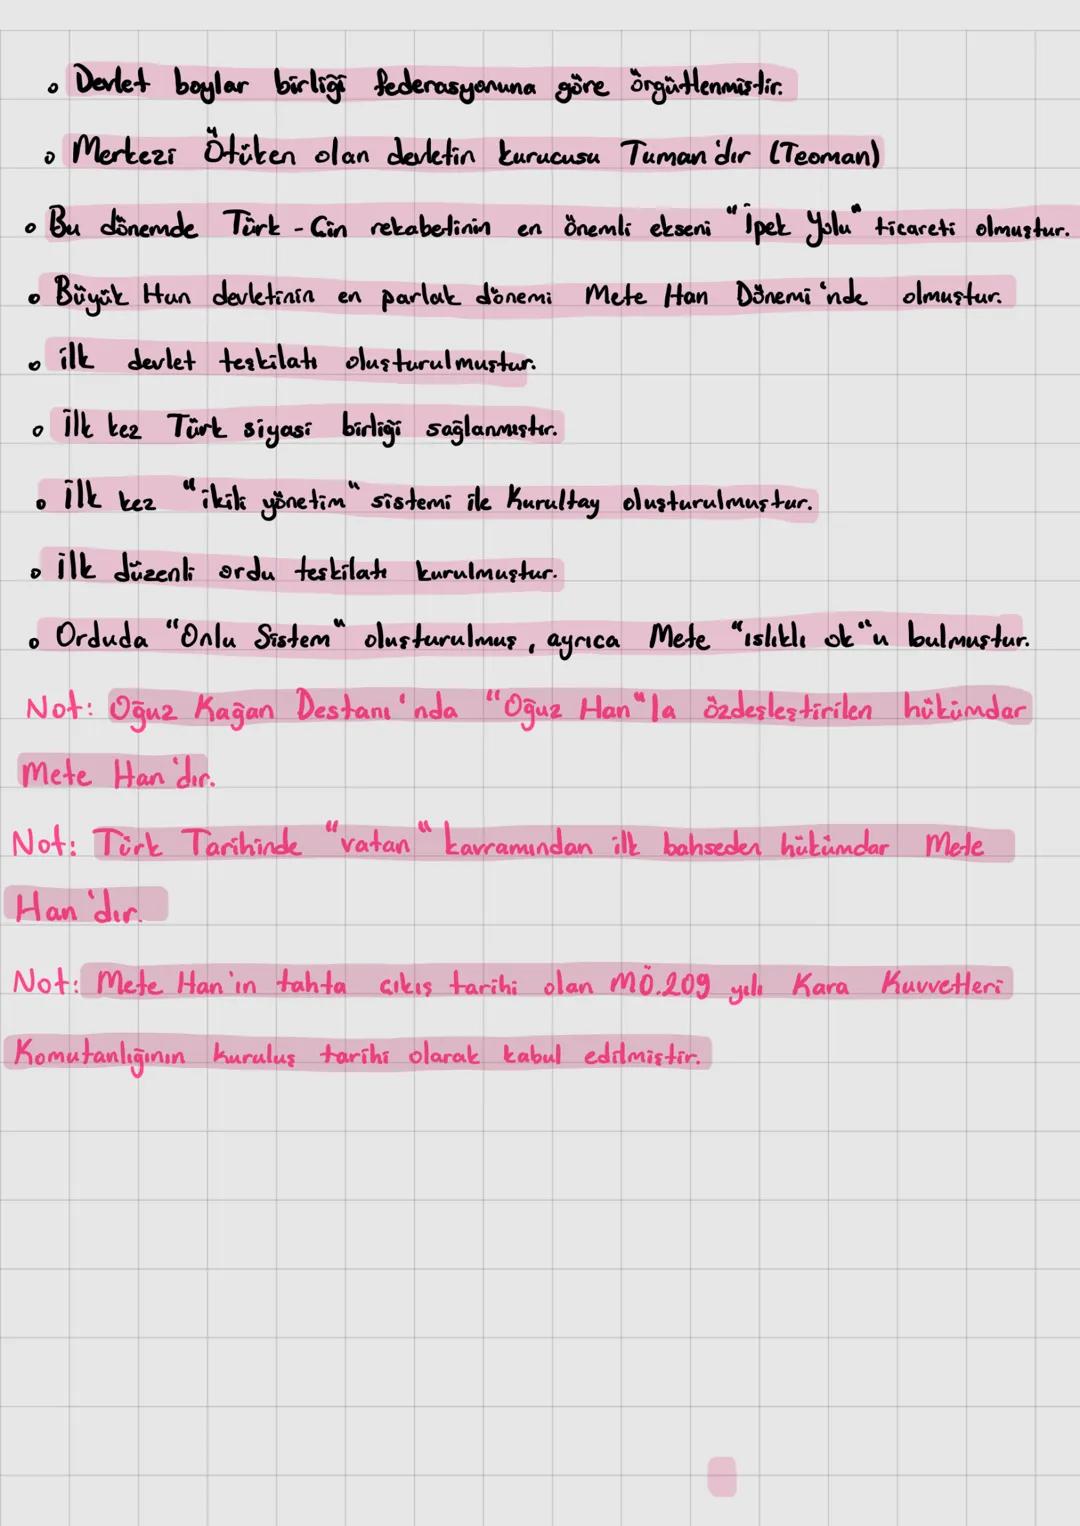 Devlet boylar birliği federasyonuna göre örgütlenmiştir.
Merkezi Ötüken olan devletin kurucusu Tuman'dır (Teoman)
Bu dönemde Türk - Çin rekabetinin en önemli ekseni "İpek Yolu" ticareti olmuştur.
Büyük Hun devletinin en parlak dönemi Mete Han Dönemi'nde olmuştur.
ilk devlet teşkilatı oluşturulmuştur.
İlk kez Türk siyasi birliği sağlanmıştır.
İlk kez "ikili yönetim" sistemi ile Kurultay oluşturulmuştur.
İlk düzenli ordu teşkilatı kurulmuştur.
Orduda "Onlu Sistem" oluşturulmuş, ayrıca Mete "ıslıklı ok"u bulmuştur.
Not: Oğuz Kağan Destanı'nda "Oğuz Han"la özdeşleştirilen hükümdar
Mete Han'dır.
Not: Türk Tarihinde "vatan" kavramından ilk bahseden hükümdar Mete
Han'dır.
Not: Mete Han'ın tahta çıkış tarihi olan MÖ.209 yılı Kara Kuvvetleri
Komutanlığının kuruluş tarihi olarak kabul edilmiştir.